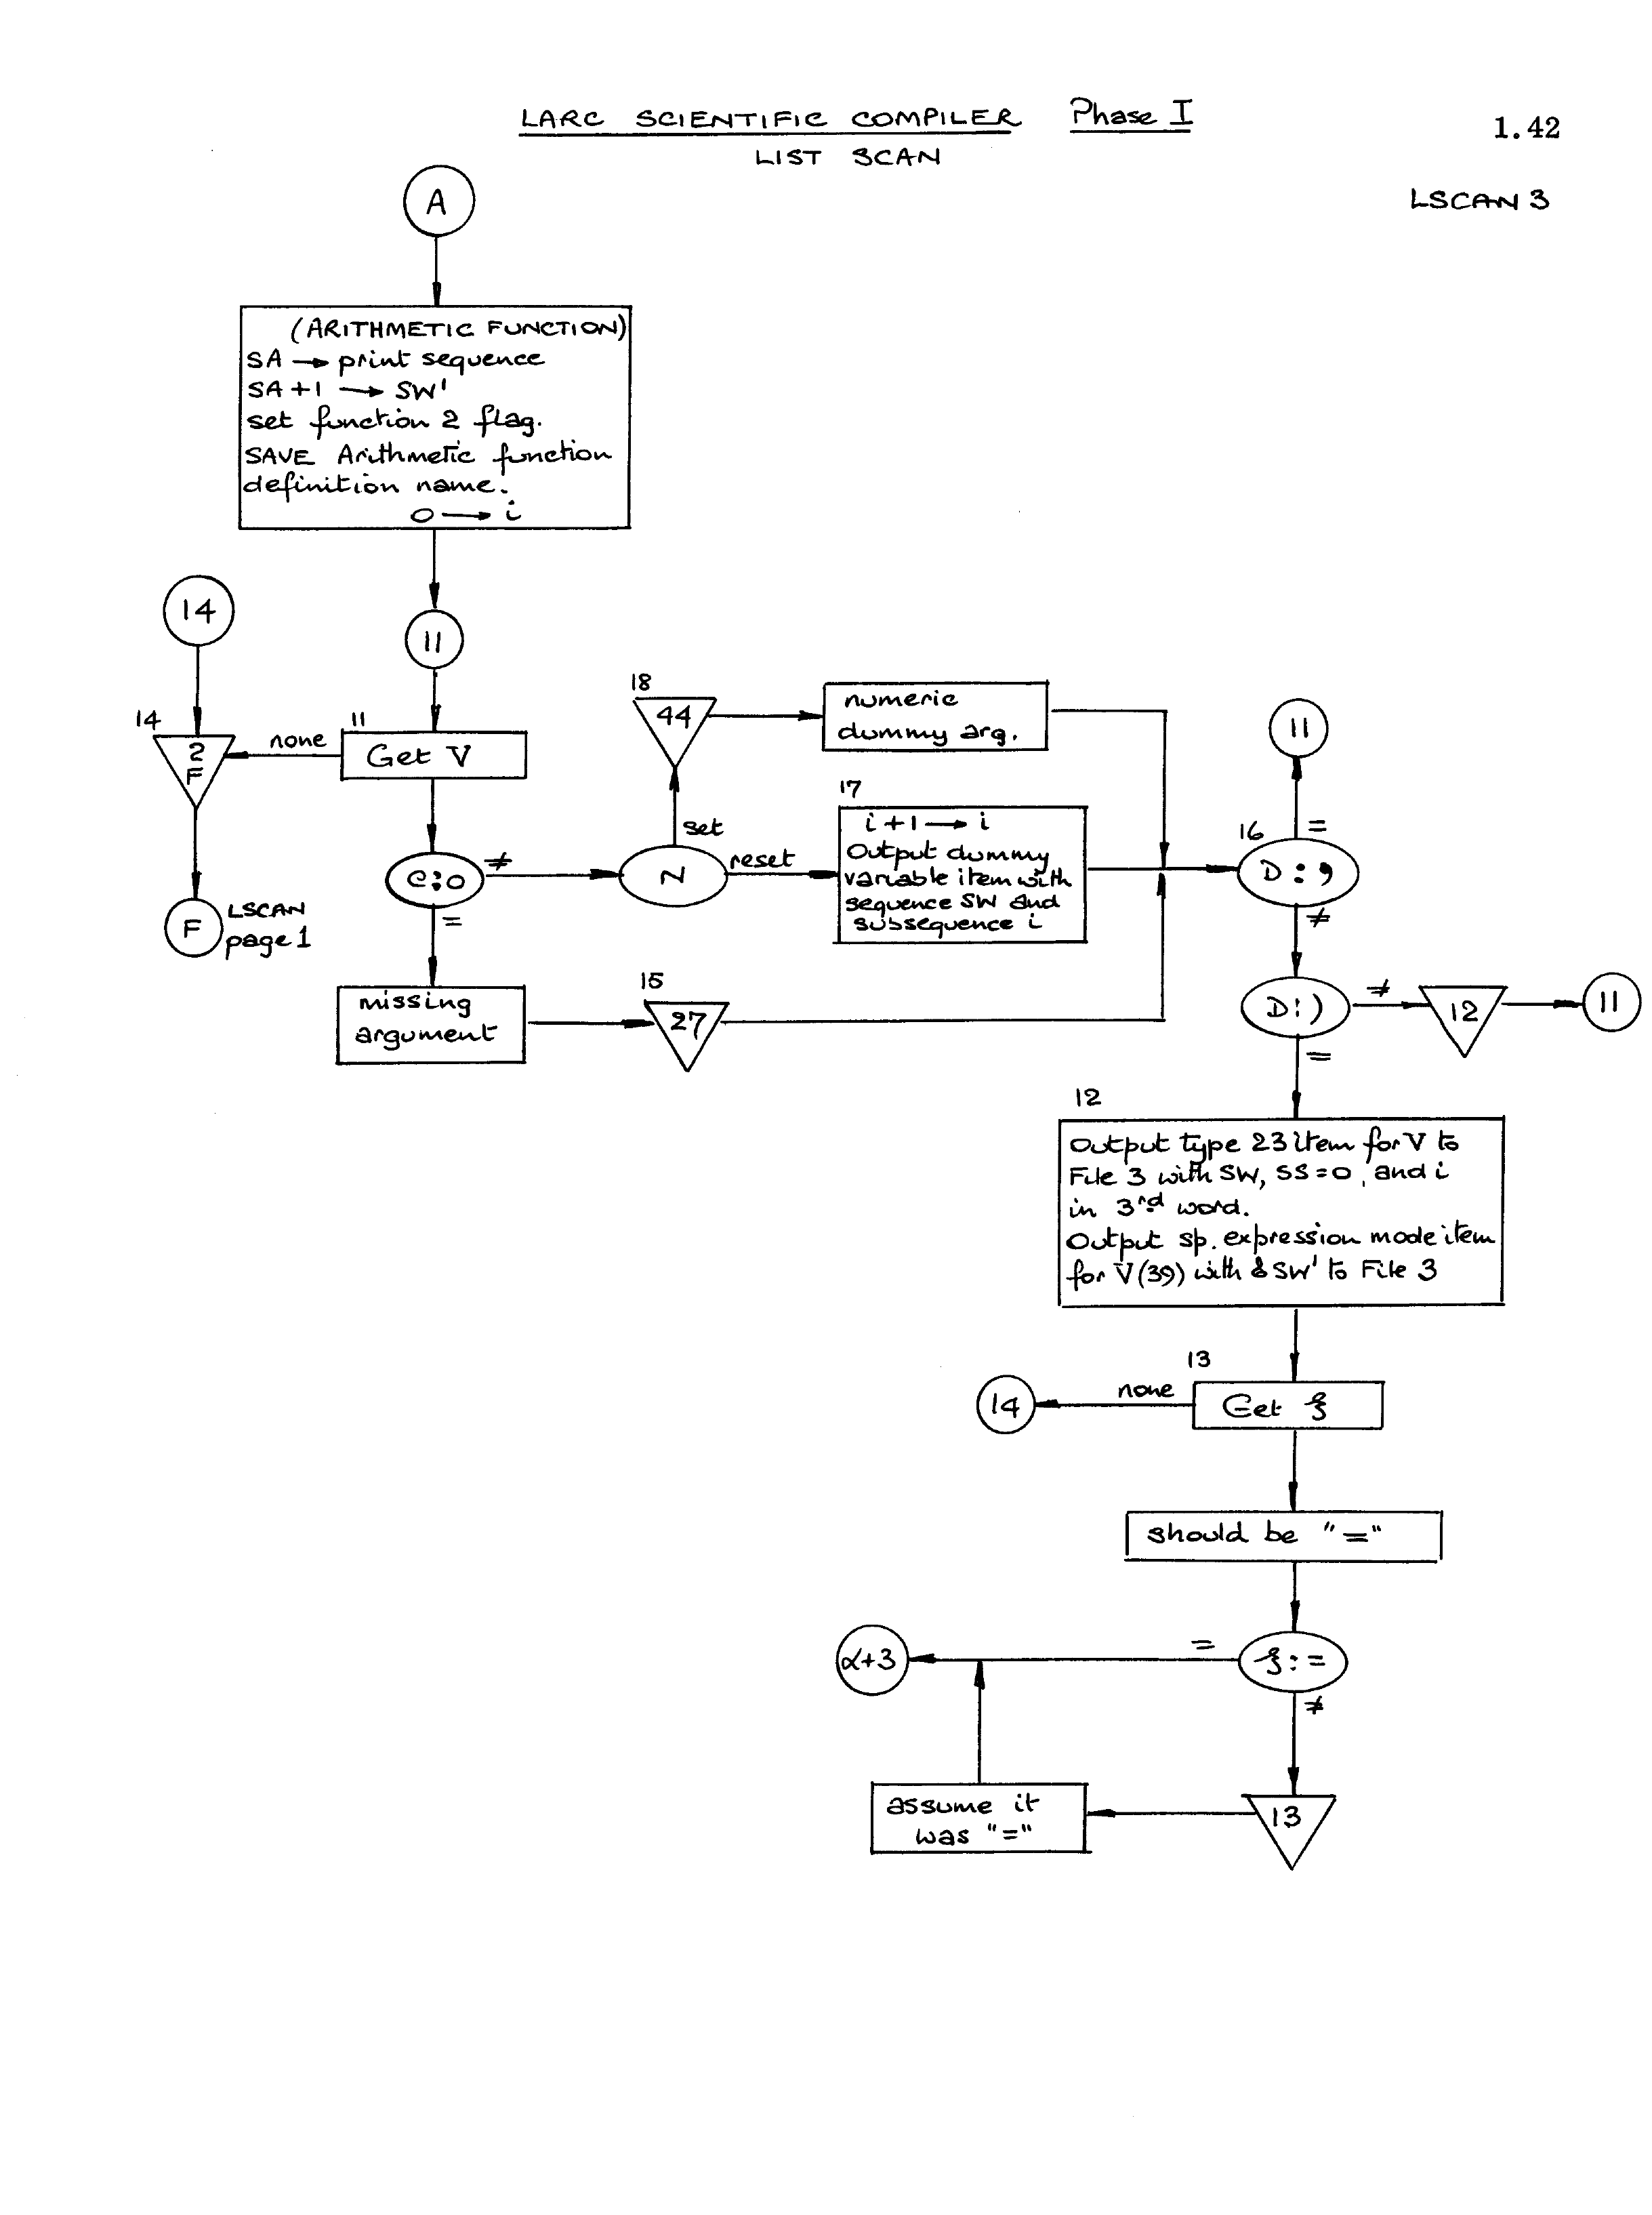 LARC SCIENTIFIC COMPILER Phase I
1.42
LIST SCAN
LSCAN 3
A
(ARITHMETIC FUNCTION)
SA → print sequence
SA+1 → SW'
set function 2 flag.
SAVE Arithmetic function
definition name.
0 → i
14
11
14
2
F
none
11
Get V
18
44
numeric
dummy arg.
11
F
LSCAN
page 1
C:0
≠
=
N
set
reset
17
i+1 → i
Output dummy
variable item with
sequence SW and
subsequence i
16
D : ,
=
≠
missing
argument
15
27
D:)
≠
12
11
=
12
Output type 23 item for V to
File 3 with SW, SS=0, and i
in 3rd word.
Output sp. expression mode item
for V(39) with & SW' to File 3
13
14
none
Get ξ
should be "="
α+3
=
ξ:=
≠
assume it
was "="
13